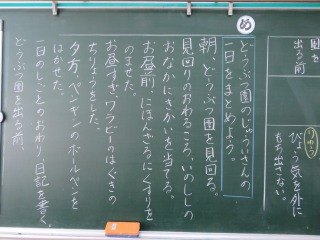 出る前
りゆう
びょう気を外に
もち出さない
め
どうぶつ園のじゅういさんの
一日をまとめよう。
朝、どうぶつ園を見回る。
見回りのおわるころ、いのししの
おなかにきかいを当てる。
お昼前、にほんざるにくすりを
のませた。
お昼すぎ、ワラビーのはぐきの
ちりょうをした。
夕方、ペンギンのボールペンを
はかせた。
一日のしごとのおわり 日記を書く。
どうぶつ園を出る前、